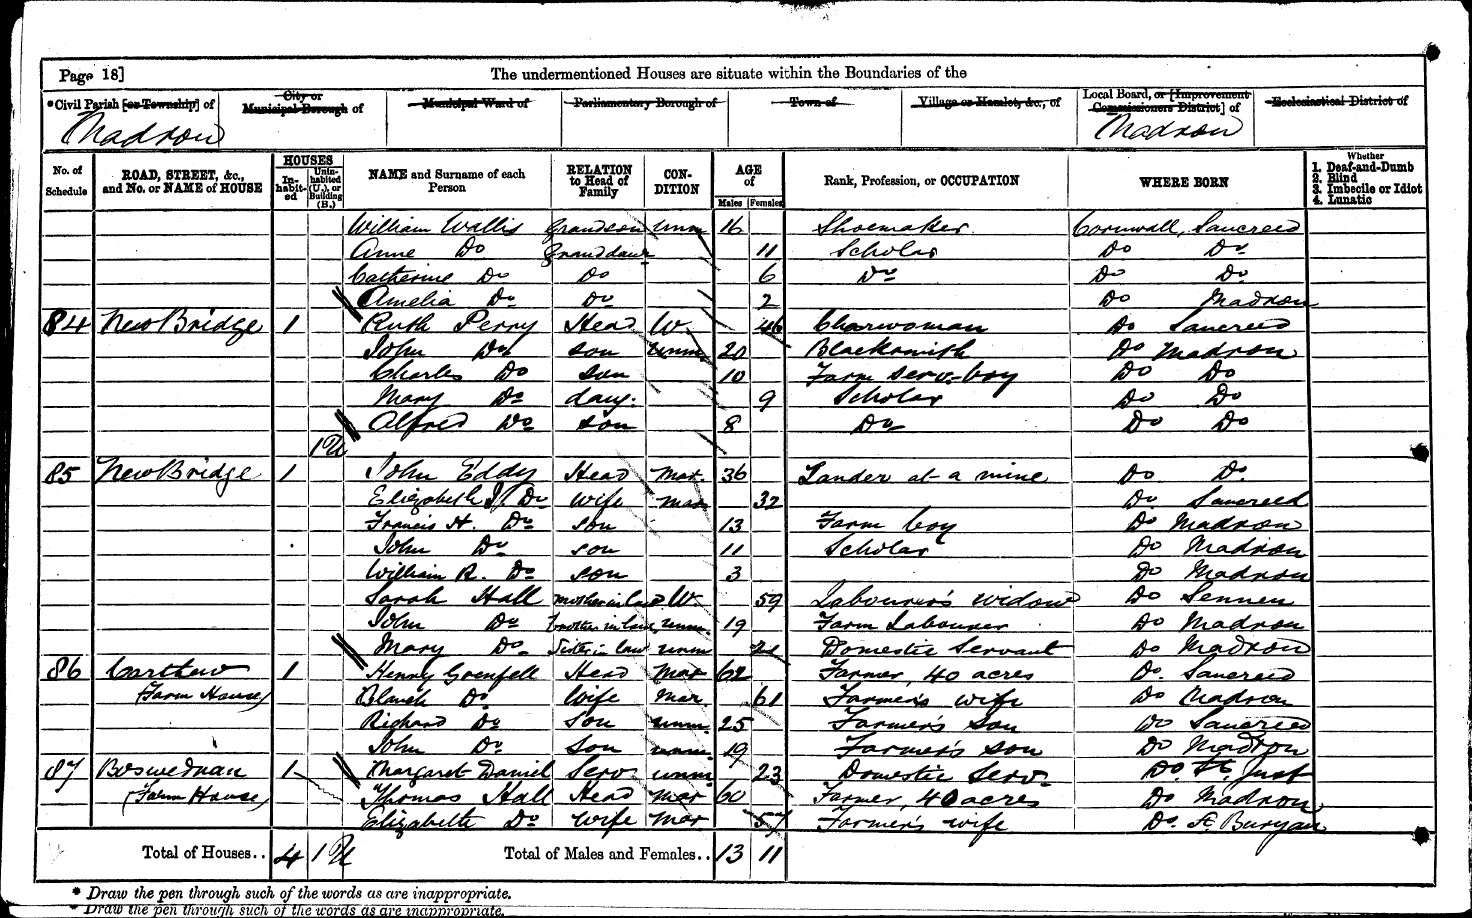 Page 18]
The undermentioned Houses are situate within the Boundaries of the
*Civil Parish [or Township] of
City or Municipal Borough of
Municipal Ward of
Parliamentary Borough of
Town of
Village or Hamlet, &c., of
Local Board, or [Improvement Commissioners District] of
Ecclesiastical District of
Madron
Madron
No. of Schedule
ROAD, STREET, &c., and No. or NAME of HOUSE
HOUSES
In-habit-ed
Unin-habited (U.), or Building (B.)
NAME and Surname of each Person
RELATION to Head of Family
CON-DITION
AGE of
Males
Females
Rank, Profession, or OCCUPATION
WHERE BORN
Whether
1. Deaf-and-Dumb
2. Blind
3. Imbecile or Idiot
4. Lunatic
William Wallis Grandson unm 16 Shoemaker Cornwall, Sancreed
Anne Do Granddaur 11 Scholar Do Do
Catherine Do Do 6 Do Do Do
Amelia Do Do 2 Do Madron
84 New Bridge 1 Ruth Perry Head W. 46 Charwoman Do Sancreed
John Do son unm. 20 Blacksmith Do Madron
Charles Do son 10 Farm serv-boy Do Do
Mary Do daug. 9 Scholar Do Do
Alfred Do son 8 Do Do Do
1 U
85 New Bridge 1 John Eddy Head Mar. 36 Lander at a mine Do Do
Elizabeth J Do Wife mar 32 Do Sancreed
Francis H. Do son 13 Farm boy Do Madron
John Do son 11 Scholar Do Madron
William R. Do son 3 Do Madron
Sarah Hall mother in law W. 59 Labourer's widow Do Sennen
John Do brother in law unm. 19 Farm Labourer Do Madron
Mary Do Sister in law unm 21 Domestic Servant Do Madron
86 Carthew 1 Henry Grenfell Head Mar 62 Farmer, 40 acres Do. Sancreed
Farm House) Blanch Do Wife Mar. 61 Farmer's wife Do Madron
Richard Do Son unm. 25 Farmer's son Do Sancreed
John Do Son unm. 19 Farmer's son Do Madron
87 Boswednan 1 Margaret Daniel Serv. unm 23 Domestic Serv. Do. St. Just
(Farm House) Thomas Hall Head mar 60 Farmer, 40 acres Do Madron
Elizabeth Do Wife mar 57 Farmer's wife Do. St. Buryan
Total of Houses.. 4 1 U Total of Males and Females.. 13 11
* Draw the pen through such of the words as are inappropriate.
* Draw the pen through such of the words as are inappropriate.